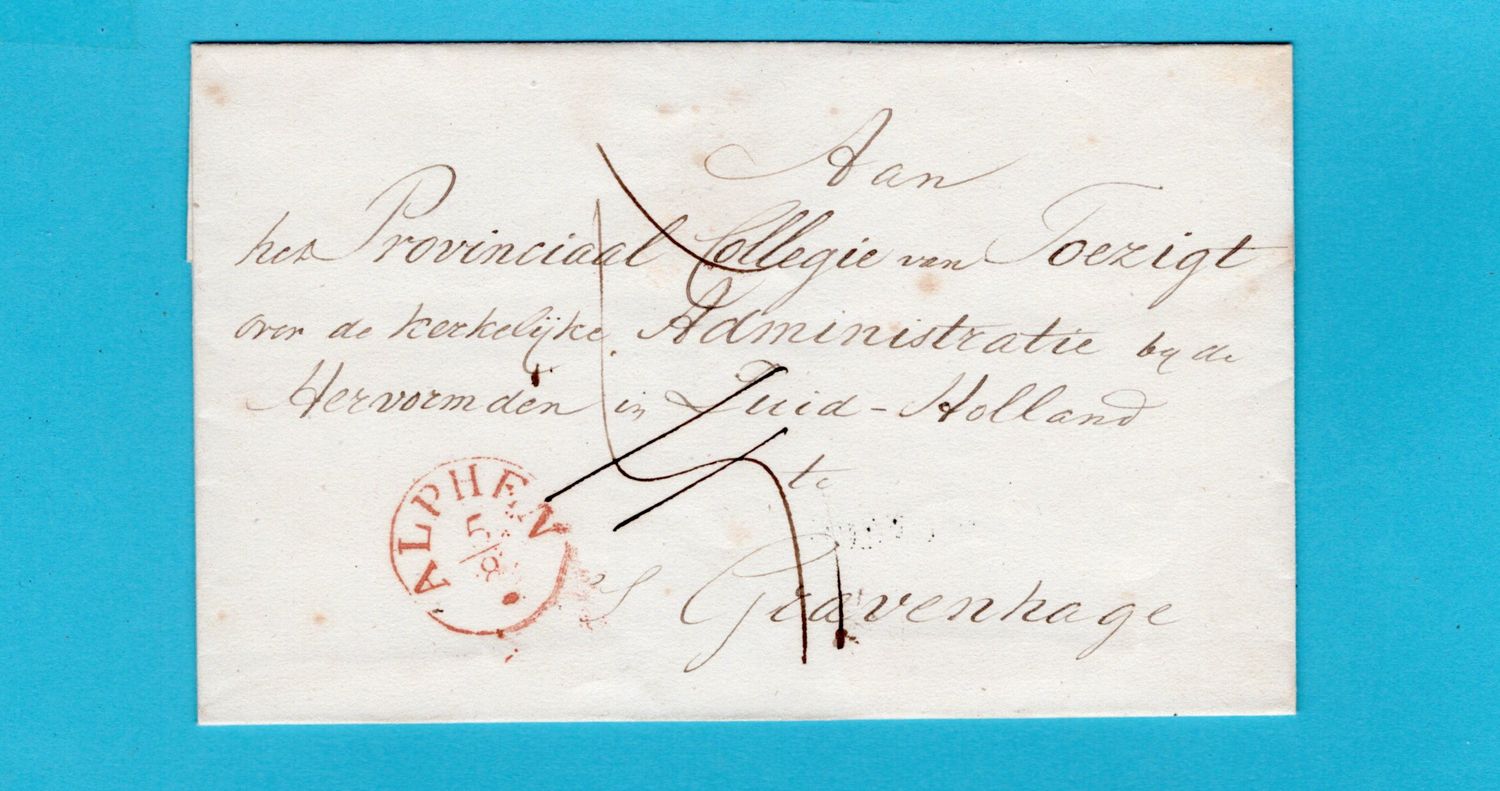 Aan
het Provinciaal Collegie van Toezigt
over de kerkelijke Administratie by de
Hervormden in Zuid-Holland
te
's Gravenhage
ALPHEN
5/8